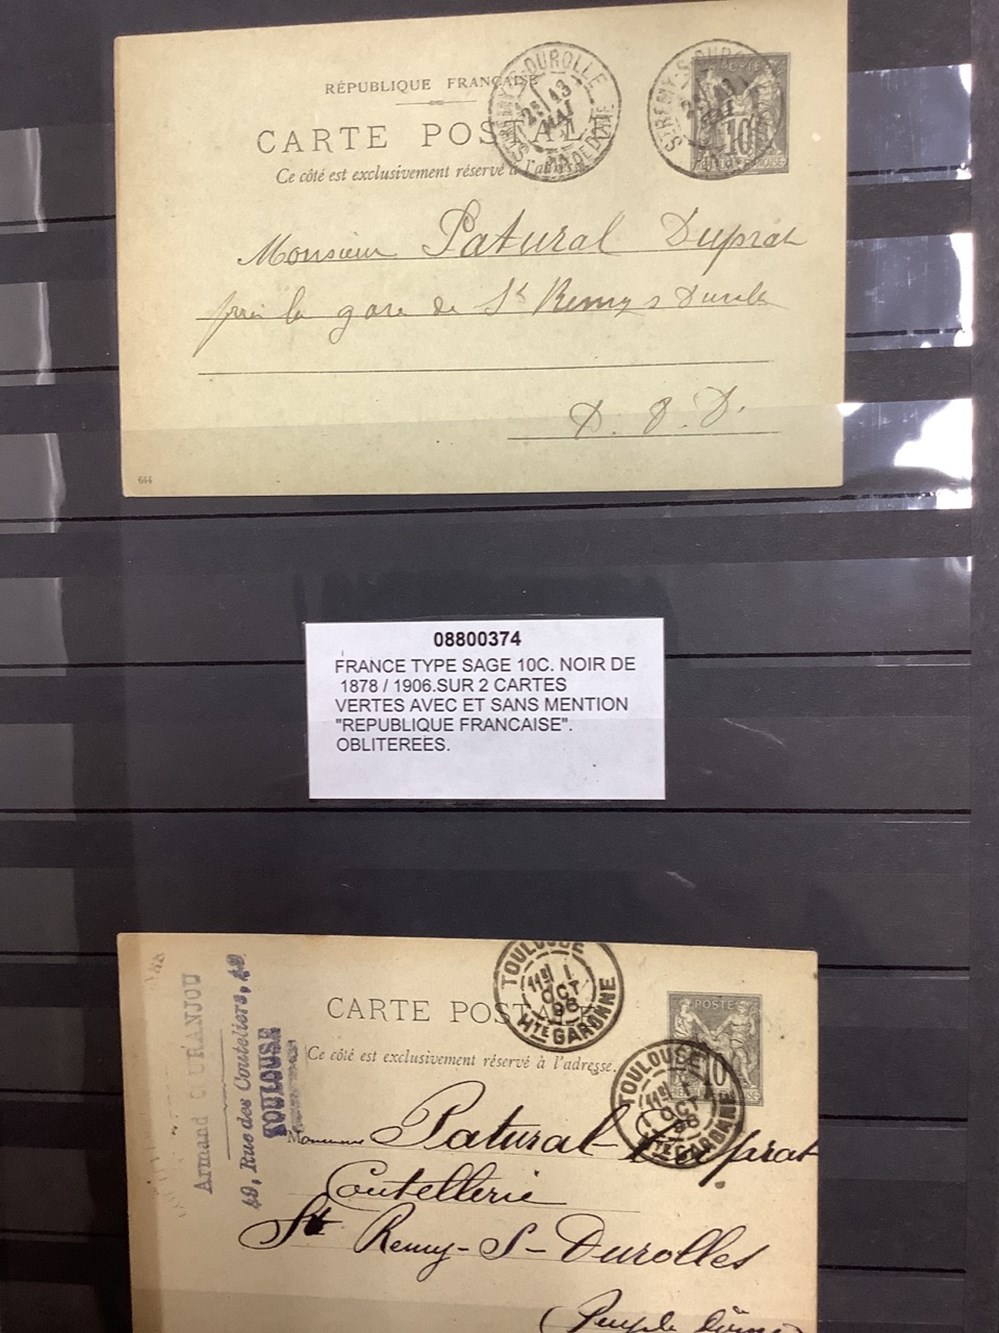 RÉPUBLIQUE FRANÇAISE
CARTE POSTALE
Ce côté est exclusivement réservé à l'adresse.
ST REMY-S-DUROLLE
2E 13
MAI
PUY DE DOME
ST REMY-S-DUROLLE
10
Monsieur Patural Duprat
près la gare de St Remy s Durolle
P. d. D.
644
08800374
FRANCE TYPE SAGE 10C. NOIR DE
1878 / 1906.SUR 2 CARTES
VERTES AVEC ET SANS MENTION
"REPUBLIQUE FRANCAISE".
OBLITEREES.
CARTE POSTALE
Ce côté est exclusivement réservé à l'adresse.
TOULOUSE
11E 1
OCT
96
HTE GARONNE
POSTE
10
TOULOUSE
11E 1
OCT
96
HTE GARONNE
Armand
49, Rue des Couteliers, 49
TOULOUSE
Monsieur Patural Duprat
Coutellerie
St Remy-S-Durolles